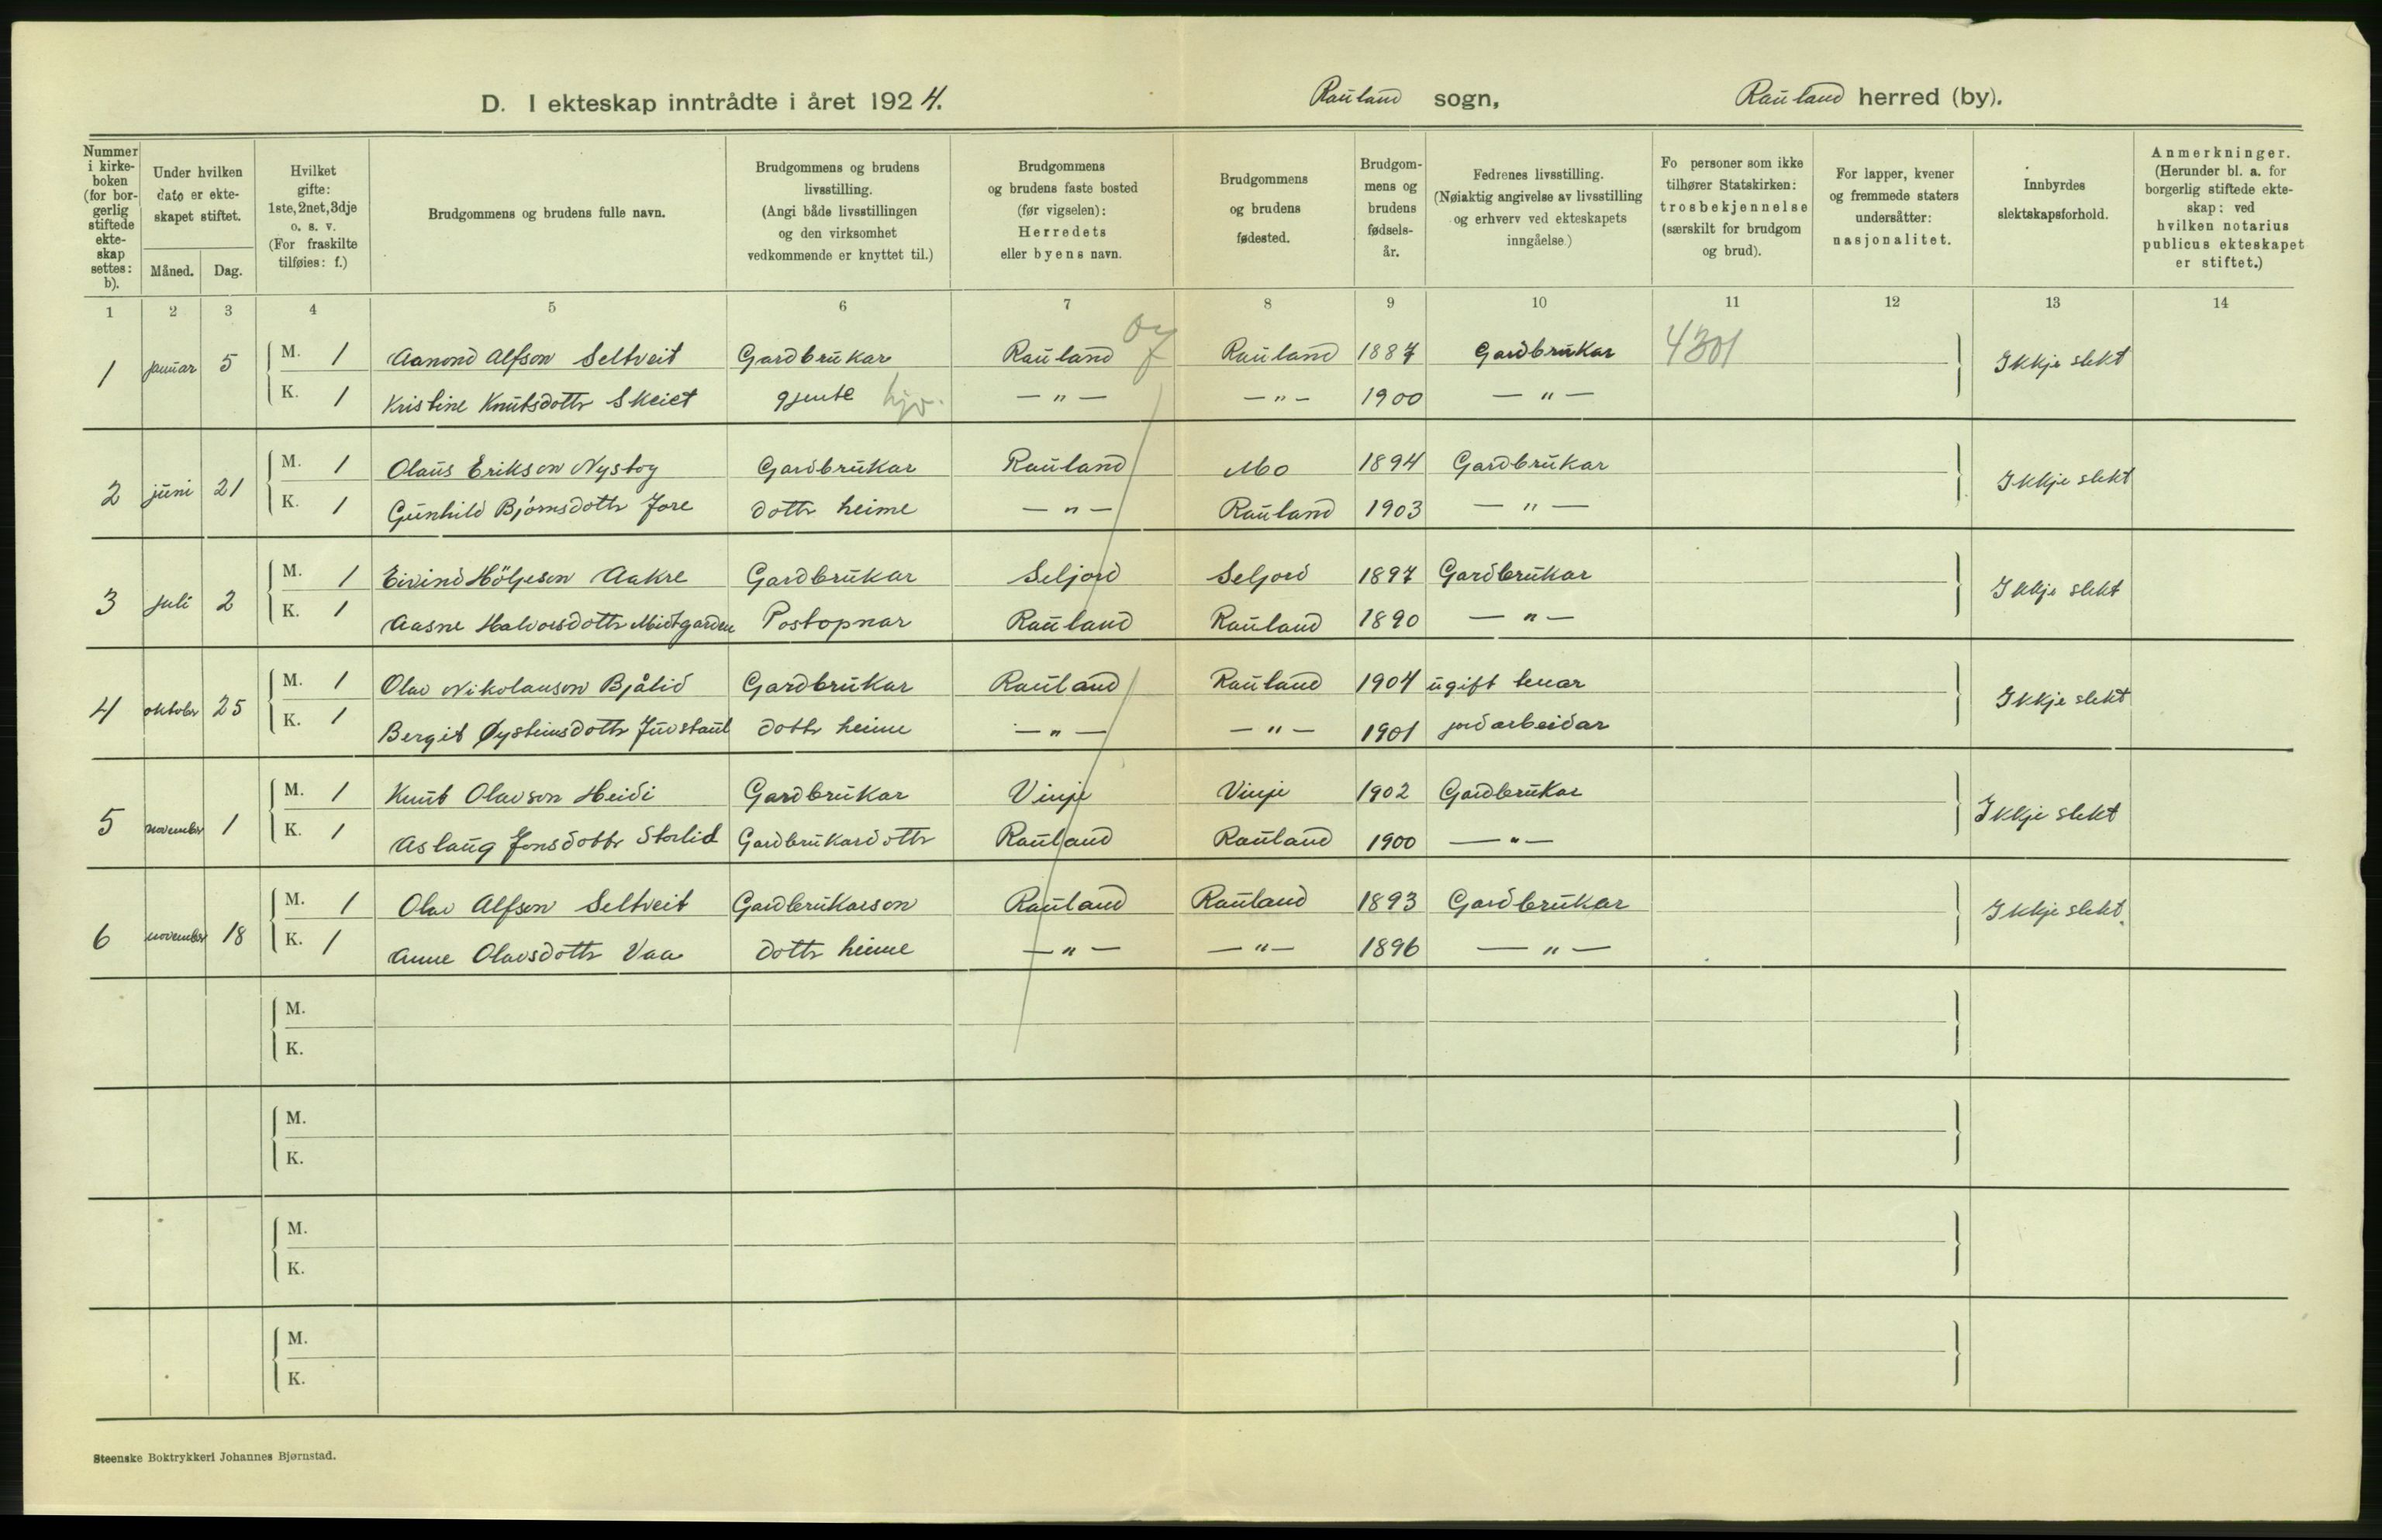 D. I ekteskap inntrådte i året 1924. Rauland sogn, Rauland herred (by).
Nummer i kirke-boken (for bor-gerlig stiftede ekte-skap settes: b).
Under hvilken dato er ekte-skapet stiftet.
Måned. Dag.
Hvilket gifte: 1ste, 2net, 3dje o. s. v. (For fraskilte tilføies: f.)
Brudgommens og brudens fulle navn.
Brudgommens og brudens livsstilling. (Angi både livsstillingen og den virksomhet vedkommende er knyttet til.)
Brudgommens og brudens faste bosted (før vigselen): Herredets eller byens navn.
Brudgommens og brudens fødested.
Brudgom-mens og brudens fødsels-år.
Fedrenes livsstilling. (Nøiaktig angivelse av livsstilling og erhverv ved ekteskapets inngåelse.)
Fo personer som ikke tilhører Statskirken: trosbekjennelse (særskilt for brudgom og brud).
For lapper, kvener og fremmede staters undersåtter: nasjonalitet.
Innbyrdes slektskapsforhold.
Anmerkninger. (Herunder bl. a. for borgerlig stiftede ekte-skap: ved hvilken notarius publicus ekteskapet er stiftet.)
1 2 3 4 5 6 7 8 9 10 11 12 13 14
1 januar 5 M. 1 Aanond Alfson Seltveit Gardbrukar Rauland Rauland 1887 Gardbrukar 4301 Ikkje slekt
K. 1 Kristine Knutsdottr Skeiet gjente hjv. — " — — " — 1900 — " —
2 juni 21 M. 1 Olaus Erikson Nystog Gardbrukar Rauland Mo 1894 Gardbrukar Ikkje slekt
K. 1 Gunhild Bjørnsdottr Jore dottr heime — " — Rauland 1903 — " —
3 juli 2 M. 1 Eivind Höljeson Aakre Gardbrukar Seljord Seljord 1897 Gardbrukar Ikkje slekt
K. 1 Aasne Halvorsdottr Midtgarden Postopnar Rauland Rauland 1890 — " —
4 oktober 25 M. 1 Olav Nikolauson Bjålid Gardbrukar Rauland Rauland 1904 ugift Ikkje slekt
K. 1 Bergit Øysteinsdottr Juvstaul dottr heime — " — — " — 1901 jordarbeidar
5 november 1 M. 1 Knut Olavson Heidi Gardbrukar Vinje Vinje 1902 Gardbrukar Ikkje slekt
K. 1 Aslaug Jonsdottr Storlid Gardbrukardottr Rauland Rauland 1900 — " —
6 november 18 M. 1 Olav Alfson Seltveit Gardbrukarson Rauland Rauland 1893 Gardbrukar Ikkje slekt
K. 1 Anne Olavsdottr Vaa dottr heime — " — — " — 1896 — " —
M.
K.
M.
K.
M.
K.
M.
K.
Steenske Boktrykkeri Johannes Bjørnstad.